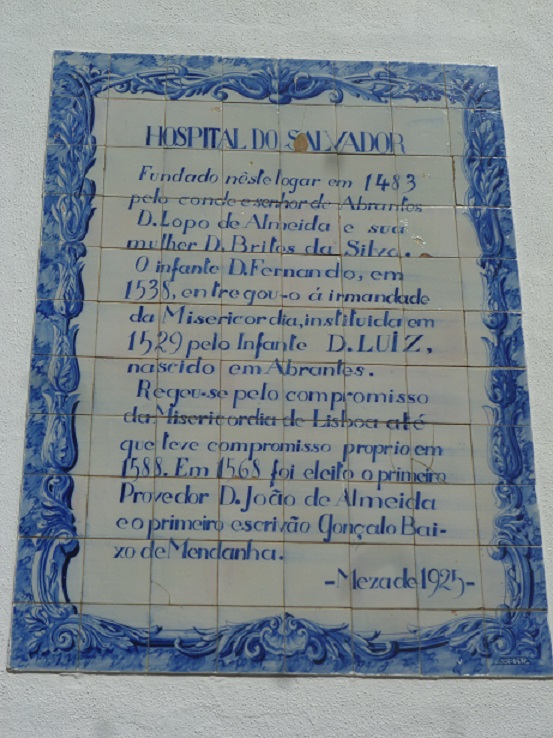 HOSPITAL DO SALVADOR
Fundado nêste logar em 1483
pelo conde e senhor de Abrantes
D. Lopo de Almeida e sua
mulher D. Brites da Silva.
O infante D. Fernando, em
1538, entregou-o á irmandade
da Misericordia, instituida em
1529 pelo Infante D. LUÍZ,
nascido em Abrantes.
Regeu-se pelo compromisso
da Misericordia de Lisboa até
que teve compromisso proprio em
1588. Em 1568 foi eleito o primeiro
Provedor D. João de Almeida
e o primeiro escrivão Gonçalo Bai-
xo de Mendanha.
-Meza de 1925-